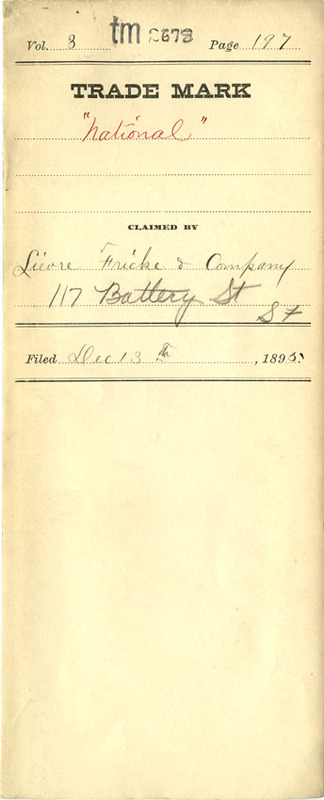 Vol. 8 tm 2678 Page 197
TRADE MARK
"National"
CLAIMED BY
Lievre Fricke & Company
117 Battery St
SF
Filed Dec 13th, 1895.